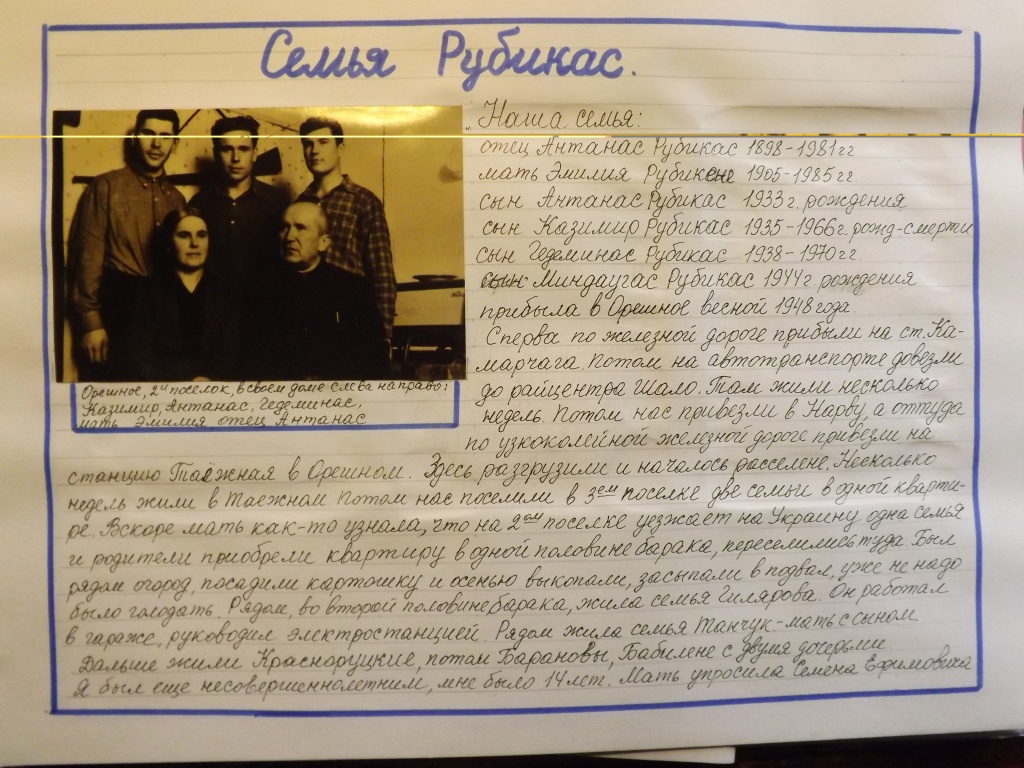 Семья Рубикас.
„Наша семья:
отец Антанас Рубикас 1898-1981гг
мать Эмилия Рубикене 1905-1985гг
сын Антанас Рубикас 1933г. рождения
сын Казимир Рубикас 1935-1966г. рожд-смерти
сын Гедеминас Рубикас 1938-1970гг.
сын Миндаугас Рубикас 1944г. рождения
прибыла в Орешное весной 1948года.
Сперва по железной дороге прибыли на ст. Ка-
марчага. Потом на автотранспорте довезли
до райцентра Шало. Там жили несколько
недель. Потом нас привезли в Нарву, а оттуда
по узкоколейной железной дороге привезли на
станцию Таёжная в Орешном. Здесь разгрузили и началось расселене. Несколько
недель жили в Таежном. Потом нас поселили в 3ем поселке две семьи в одной кварти-
ре. Вскоре мать как-то узнала, что на 2ом поселке уезжает на Украину одна семья
и родители приобрели квартиру в одной половине барака, переселились туда. Был
рядом огород, посадили картошку и осенью выкопали, засыпали в подвал, уже не надо
было голодать. Рядом, во второй половине барака, жила семья Гилярова. Он работал
в гараже, руководил электростанцией. Рядом жила семья Танчук-мать с сыном
Дальше жили Красноруцкие, потом Барановы, Бабилене с двумя дочерьми
Я был еще несовершеннолетним, мне было 14 лет. Мать упросила Семена Ефимовича
Орешное, 2й поселок, в своем доме слева направо:
Казимир, Антанас, Гедеминас,
мать Эмилия отец Антанас